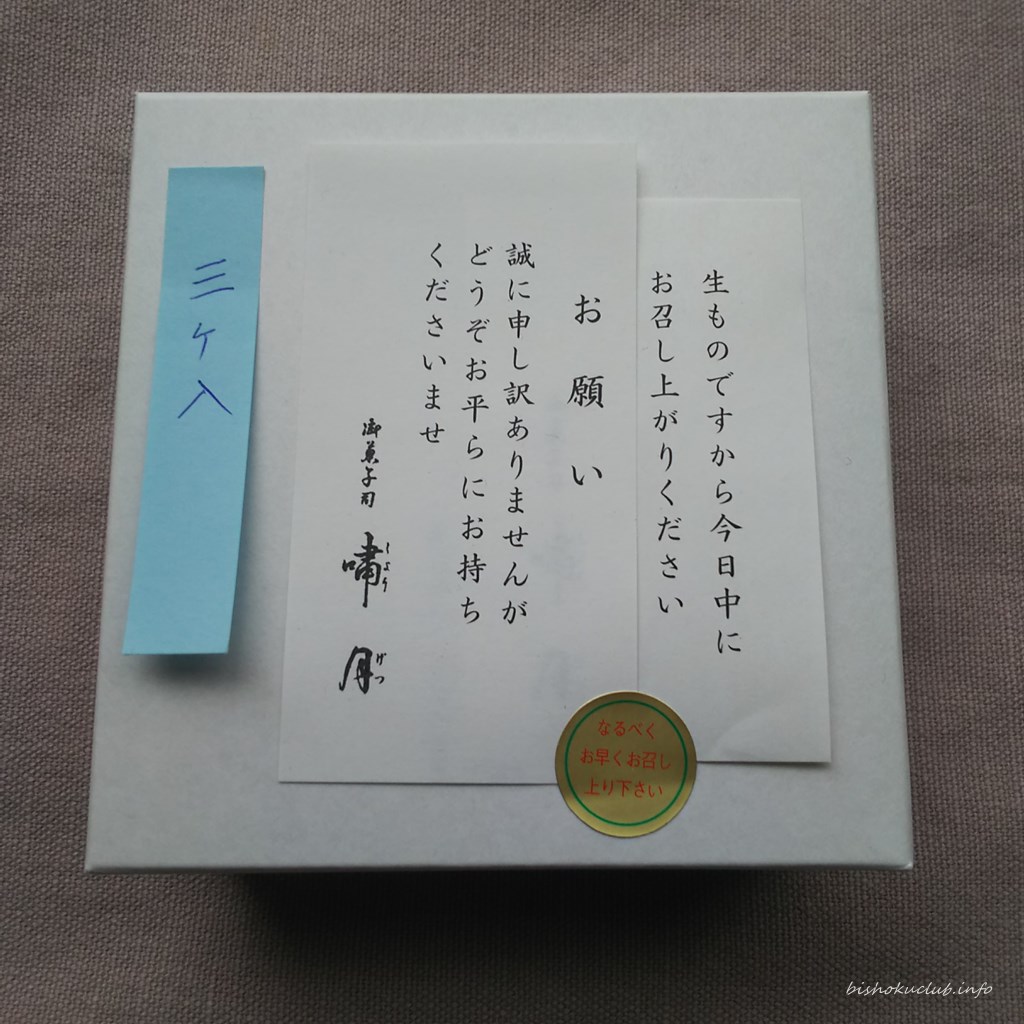 生ものですから今日中に
お召し上がりください
お願い
誠に申し訳ありませんが
どうぞお平らにお持ち
くださいませ
御菓子司
嘯月
しょう
げつ
三ケ入
なるべく
お早くお召し
上り下さい
bishokuclub.info